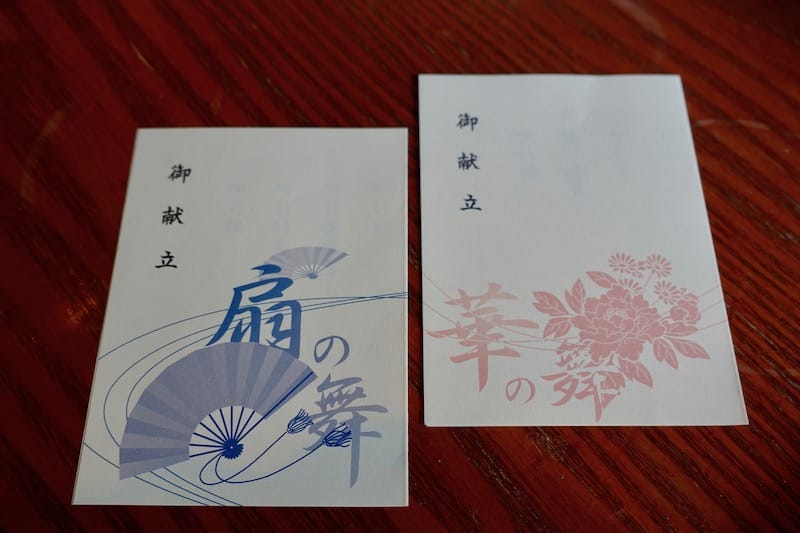 御献立
扇の舞
御献立
華の舞